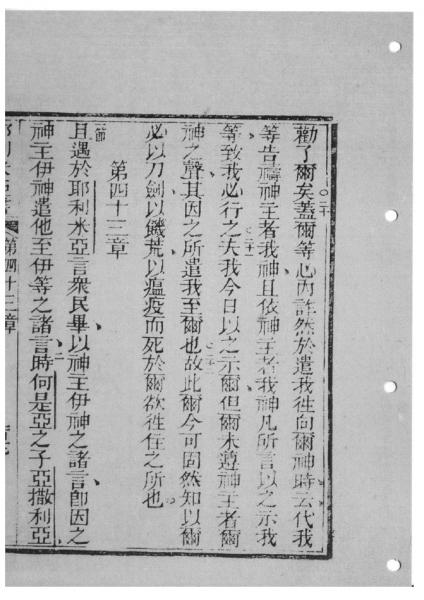 勸了爾矣蓋爾等心內詐然於遣我徃向爾神時云代我
二十
等告禱神主者我神且依神主者我神凡所言以之示我
等致我必行之夫我今日以之示爾但爾未遵神主者爾
二十一
神之聲其因之所遣我至爾也故此爾今可固然知以爾
二十二
必以刀劍以饑荒以瘟疫而死於爾欲徃住之所也
第四十三章
一節
且遇於耶利米亞言衆民畢以神主伊神之諸言卽因之
神主伊神遣他至伊等之諸言時何是亞之子亞撒利亞
二
第四十三章